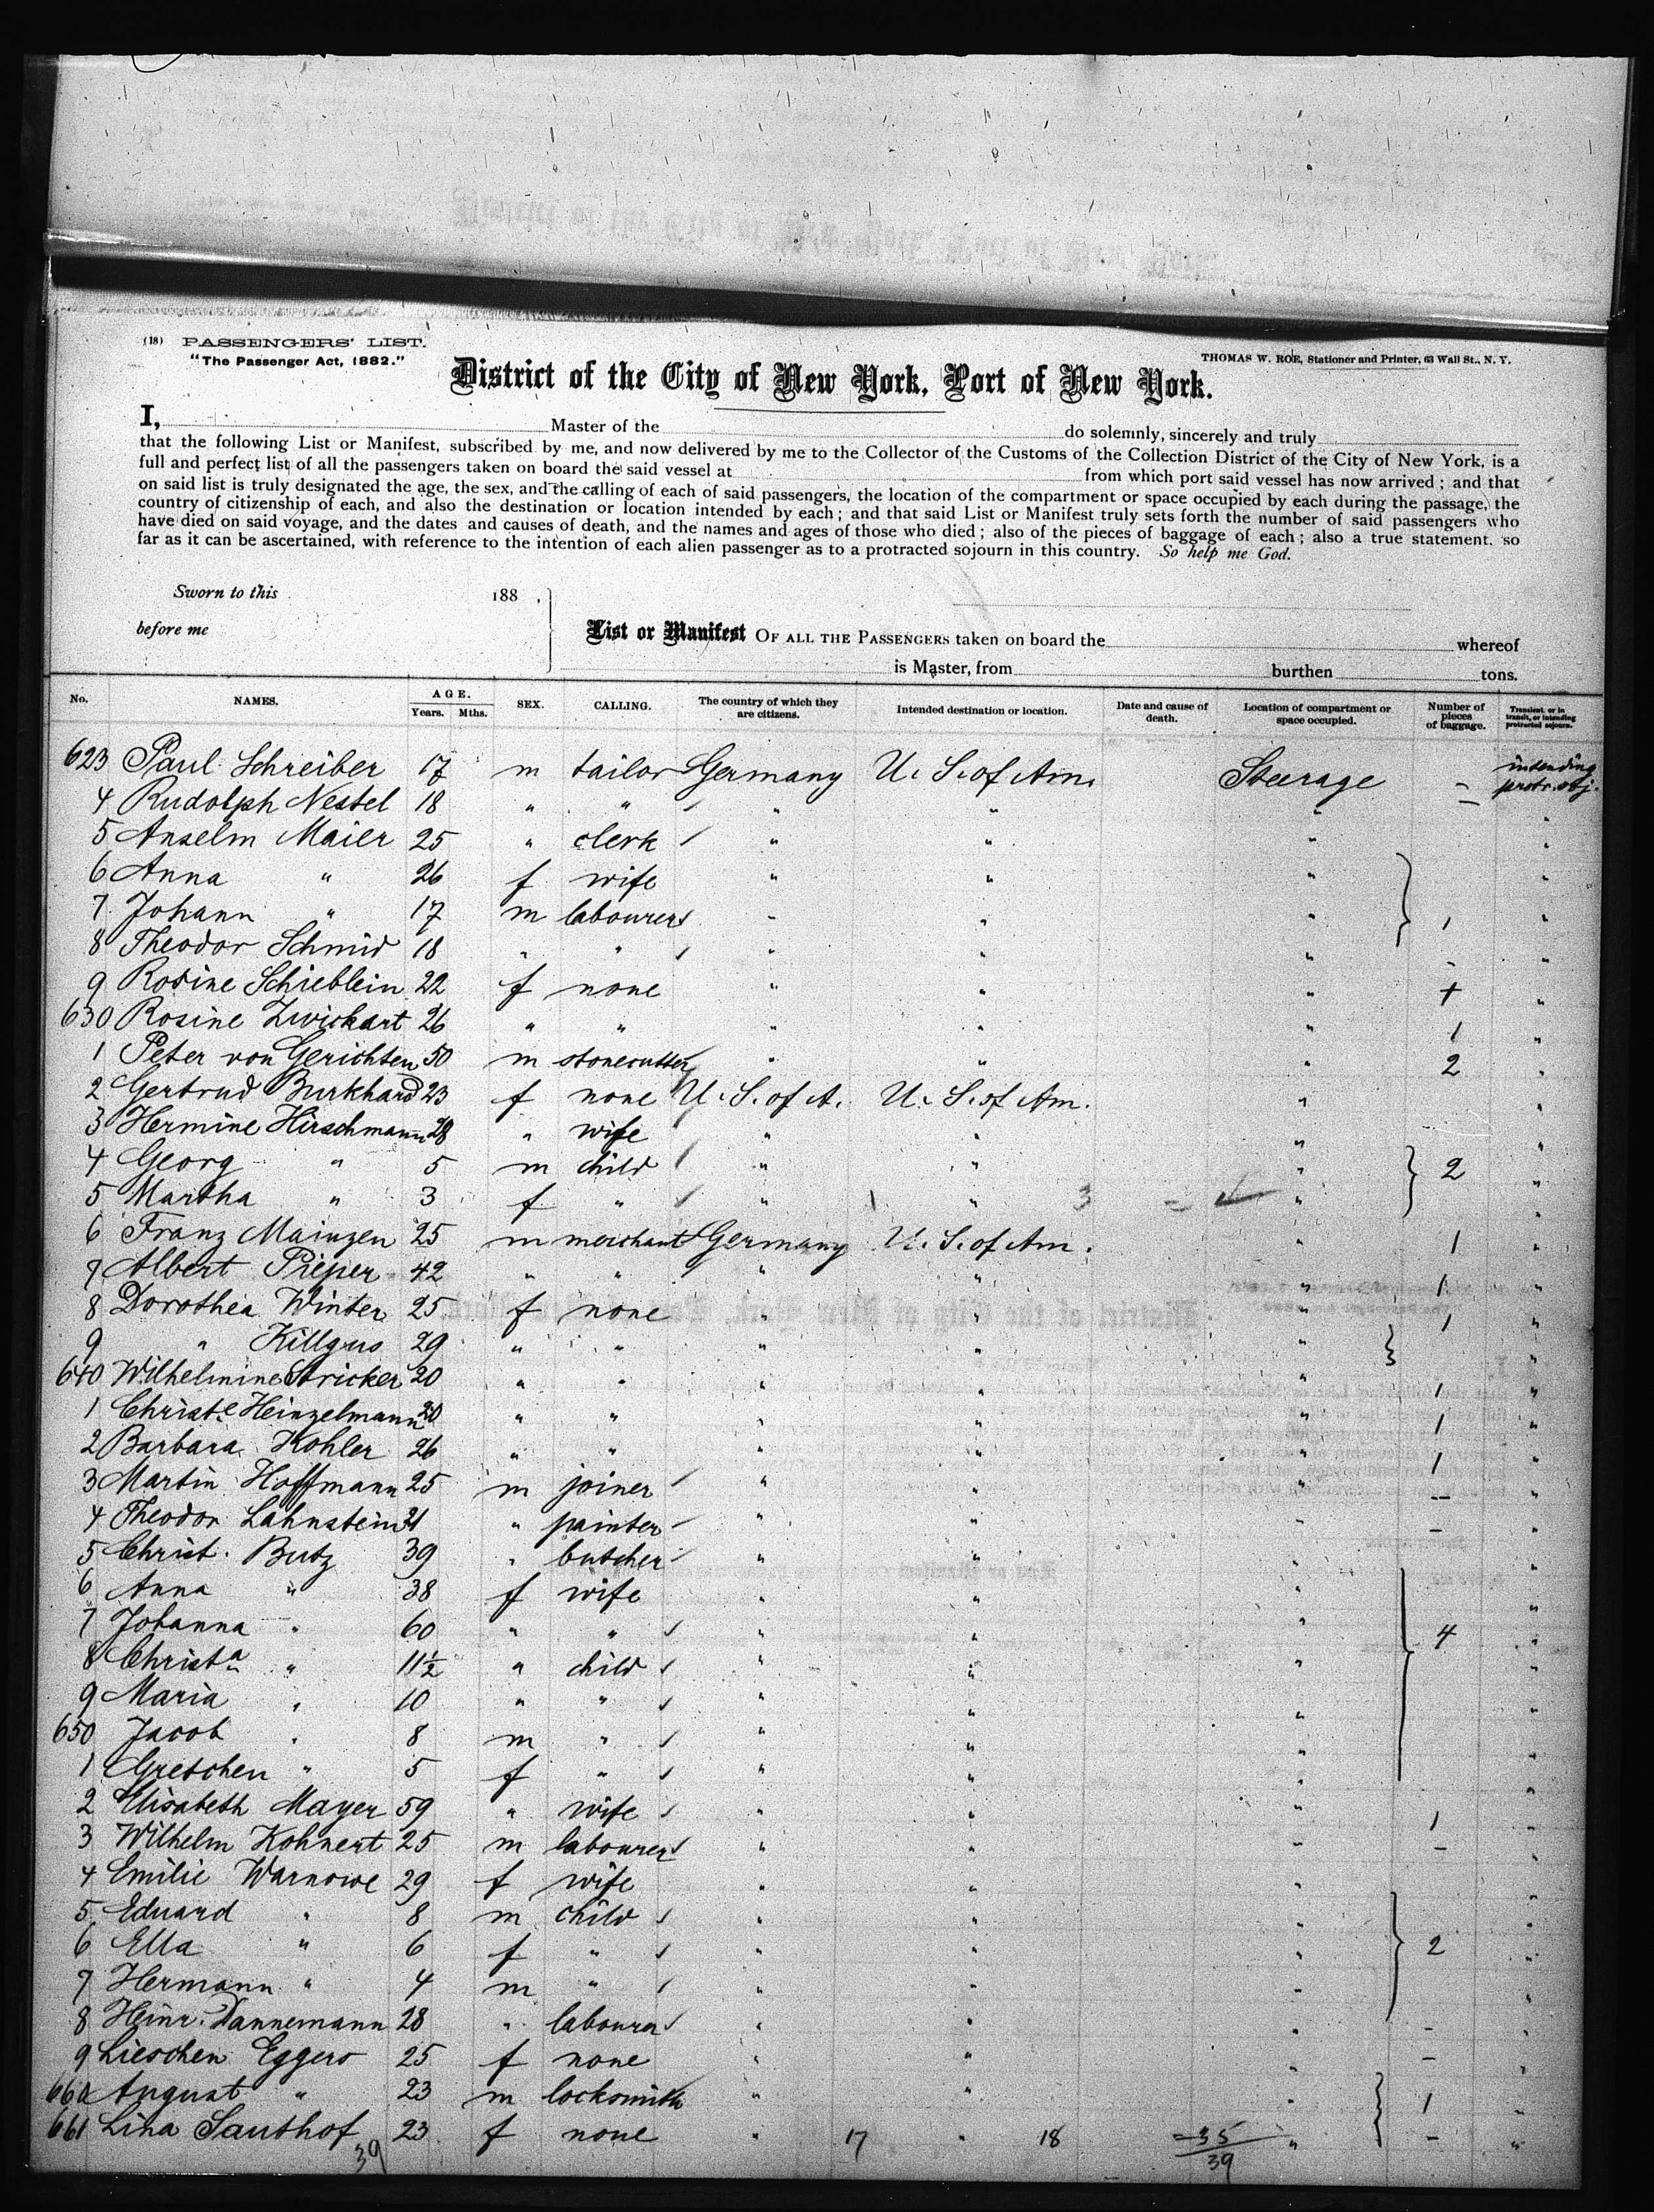 (18) PASSENGERS' LIST.
"The Passenger Act, 1882."
THOMAS W. ROE, Stationer and Printer, 63 Wall St., N. Y.
District of the City of New York, Port of New York.
I, Master of the do solemnly, sincerely and truly
that the following List or Manifest, subscribed by me, and now delivered by me to the Collector of the Customs of the Collection District of the City of New York, is a
full and perfect list of all the passengers taken on board the said vessel at from which port said vessel has now arrived; and that
on said list is truly designated the age, the sex, and the calling of each of said passengers, the location of the compartment or space occupied by each during the passage, the
country of citizenship of each, and also the destination or location intended by each; and that said List or Manifest truly sets forth the number of said passengers who
have died on said voyage, and the dates and causes of death, and the names and ages of those who died; also of the pieces of baggage of each; also a true statement, so
far as it can be ascertained, with reference to the intention of each alien passenger as to a protracted sojourn in this country. So help me God.
Sworn to this 188 .
before me
List or Manifest OF ALL THE PASSENGERS taken on board the whereof
is Master, from burthen tons.
No. NAMES. AGE. Years. Mths. SEX. CALLING. The country of which they are citizens. Intended destination or location. Date and cause of death. Location of compartment or space occupied. Number of pieces of baggage. Transient, or in transit, or intending protracted sojourn.
623 Paul Schreiber 17 m tailor Germany U. S. of Am. Steerage - intending protr. obj.
4 Rudolph Nestel 18 " " " " " - "
5 Anselm Maier 25 " clerk " " " "
6 Anna " 26 f wife " " " "
7 Johann " 17 m labourer " " " 1 "
8 Theodor Schmid 18 " " " " " - "
9 Rosine Schieblein 22 f none " " " 1 "
630 Rosine Zwickart 26 " " " " " 1 "
1 Peter von Gerichten 50 m stonecutter " " " 2 "
2 Gertrud Burkhard 23 f none U. S. of A. U. S. of Am. " "
3 Hermine Hirschmann 28 " wife " " " "
4 Georg " 5 m child " " " 2 "
5 Martha " 3 f " " " 3 " "
6 Franz Mainzen 25 m merchant Germany U. S. of Am. " 1 "
7 Albert Pieper 42 " " " " " 1 "
8 Dorothea Winter 25 f none " " " 1 "
9 " Killgus 29 " " " " " "
640 Wilhelmine Stricker 20 " " " " " 1 "
1 Christe Heinzelmann 20 " " " " " 1 "
2 Barbara Kohler 26 " " " " " 1 "
3 Martin Hoffmann 25 m joiner " " " - "
4 Theodor Lahnstein 31 " painter " " " - "
5 Christ. Butz 39 " butcher " " " "
6 Anna " 38 f wife " " " "
7 Johanna " 60 " " " " " 4 "
8 Christa " 11½ " child " " " "
9 Maria " 10 " " " " " "
650 Jacob " 8 m " " " " "
1 Gretchen " 5 f " " " " "
2 Elisabeth Mayer 59 " wife " " " 1 "
3 Wilhelm Kohnert 25 m labourer " " " - "
4 Emilie Warnowe 29 f wife " " " "
5 Eduard " 8 m child " " " "
6 Ella " 6 f " " " " 2 "
7 Hermann " 4 m " " " " "
8 Heinr. Dannemann 28 " labourer " " " - "
9 Lieschen Eggers 25 f none " " " - "
660 August " 23 m locksmith " " " 1 "
661 Lina Sauthof 23 f none " 17 " 18 =35 " - "
39 39